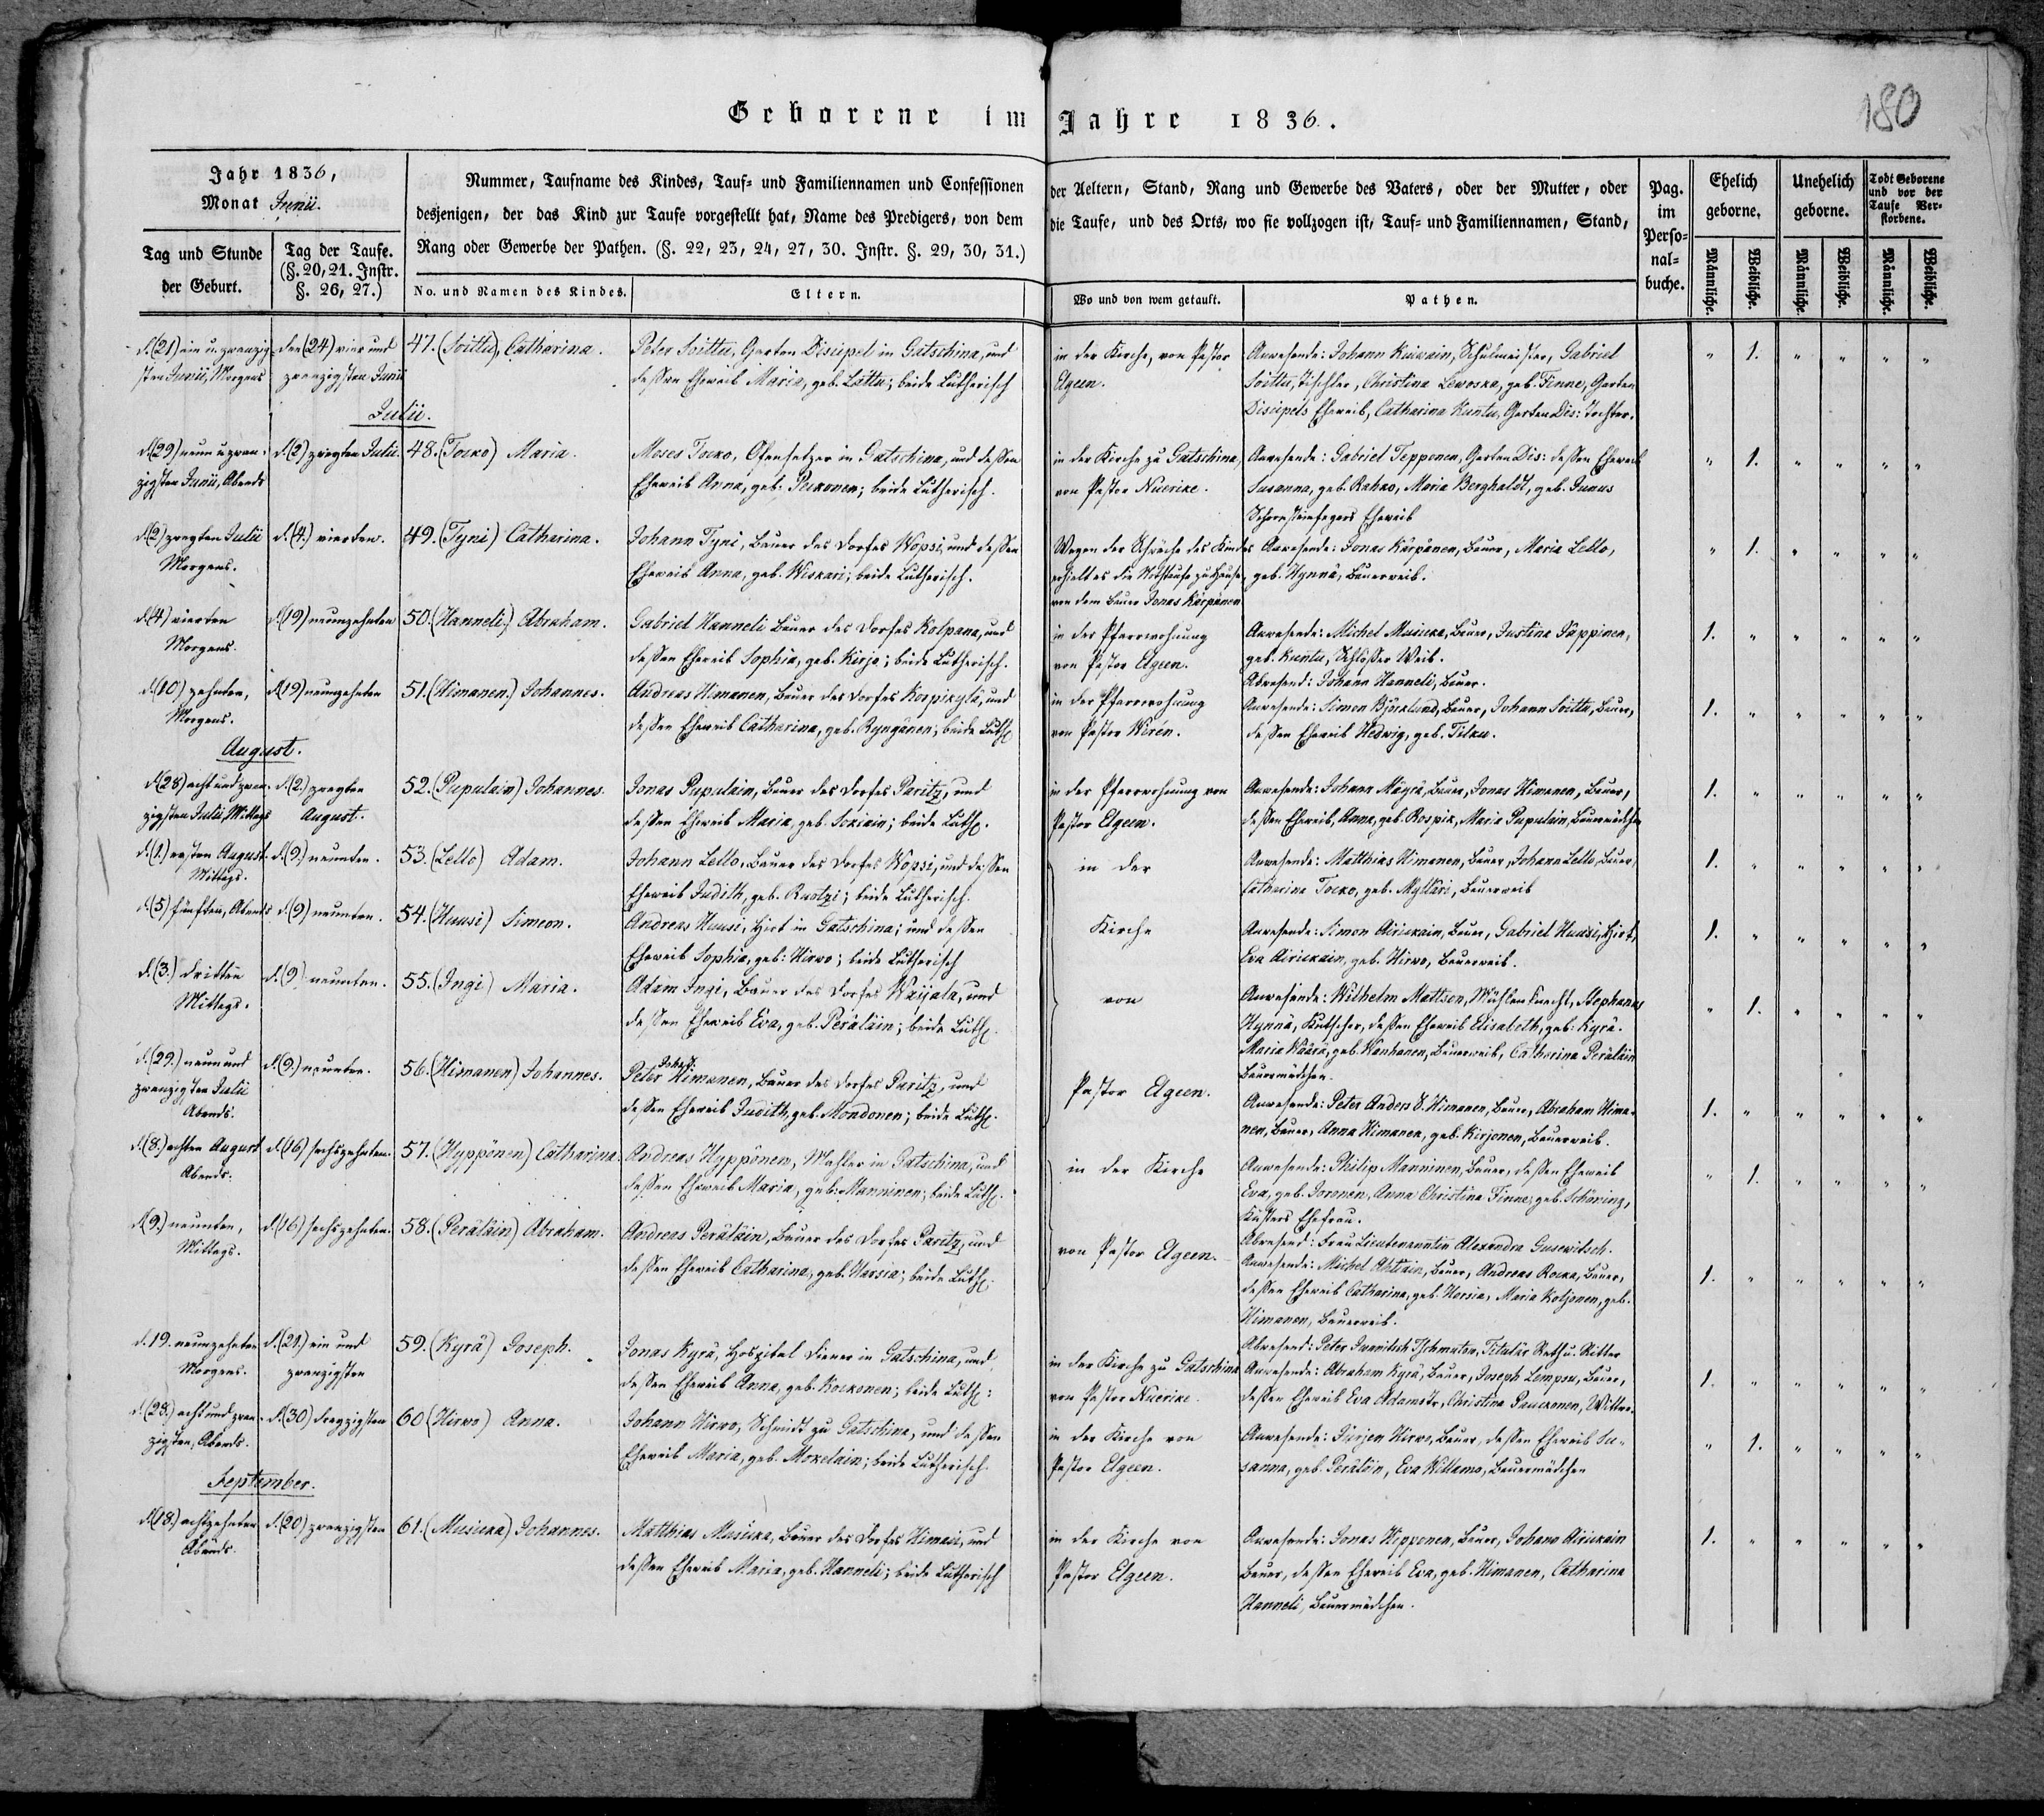 Geborene im Jahre 1836.
180
Jahr 1836,
Monat Junii.
Tag und Stunde
der Geburt.
Tag der Taufe.
(§. 20, 21. Instr.
§. 26, 27.)
Nummer, Taufname des Kindes, Tauf- und Familiennamen und Confessionen
desjenigen, der das Kind zur Taufe vorgestellt hat, Name des Predigers, von dem
Rang oder Gewerbe der Pathen. (§. 22, 23, 24, 27, 30. Instr. §. 29, 30, 31.)
No. und Namen des Kindes.
Eltern.
der Aeltern, Stand, Rang und Gewerbe des Vaters, oder der Mutter, oder
die Taufe, und des Orts, wo sie vollzogen ist, Tauf- und Familiennamen, Stand,
Wo und von wem getauft.
Pathen.
Pag.
im
Perso-
nal-
buche.
Ehelich
geborne.
Unehelich
geborne.
Todt Geborene
und vor der
Taufe Ver-
storbene.
Männliche.
Weibliche.
Männliche.
Weibliche.
Männliche.
Weibliche.
d. (21) ein u. zwanzig-
sten Junii, Morgens
den (24) vier und
zwanzigsten Junii
47. (Soittu), Catharina.
Peter Soittu, Garten Discipel in Gatschina, und
dessen Eheweib Maria, geb. Lottu; beide Lutherisch
in der Kirche, von Pastor
Elgeen.
Anwesende: Johann Kuikain, Schulmeister, Gabriel
Soittu, Tischler, Christina Lewoska, geb. Finne, Garten
Discipels Eheweib, Catharina Kuntu, Garten Dis: Tochter.
" 1. " " " "
Julii.
d. (29) neun u zwan-
zigsten Junii, Abends
d. (2) zweyten Julii.
48. (Tocko) Maria.
Moses Tocko, Ofensetzer in Gatschina, und dessen
Eheweib Anna, geb. Peckonen; beide Lutherisch.
in der Kirche zu Gatschina,
von Pastor Nuerike.
Anwesende: Gabriel Tepponen, Garten Dis: dessen Eheweib
Susanna, geb. Rahko, Maria Berghaldt, geb. Junus
Schornsteinfegers Eheweib
" 1. " " " "
d. (2) zweyten Julii
Morgens.
d. (4.) vierten.
49. (Tyni) Catharina.
Johann Tyni, Bauer des Dorfes Wopsi, und dessen
Eheweib Anna, geb. Wiskari; beide Lutherisch.
Wegen der Schwäche des Kindes
erhielt es die Nothtaufe zu Hause,
von dem Bauer Jonas Kärpänen
Anwesende: Jonas Kärpänen, Bauer, Maria Lello,
geb. Hynnä, Bauerweib.
" 1. " " " "
d. (4) vierten
Morgens.
d. (19) neunzehnten
50. (Hanneli) Abraham.
Gabriel Hanneli Bauer des Dorfes Kolpana, und
dessen Eheweib Sophia, geb. Kirjo; beide Lutherisch.
in der Pfarrwohnung
von Pastor Elgeen.
Anwesende: Michel Musicka, Bauer, Justina Päppinen,
geb. Kuntu, Schlosser Weib.
Abwesend: Johann Hanneli, Bauer.
1. " " " " "
d. (10) zehnten,
Morgens.
d. (19) neunzehnten
51. (Himanen.) Johannes.
Andreas Himanen, Bauer des Dorfes Korpikylä, und
dessen Eheweib Catharina, geb. Ryngänen; beide Luth.
in der Pfarrwohnung
von Pastor Wirén.
Anwesende: Simon Björklund, Bauer, Johann Soittu, Bauer,
dessen Eheweib Hedwig, geb. Tilku.
1. " " " " "
August.
d. (28) acht und zwan-
zigsten Julii, Mittags
d. (2.) zweyten
August.
52. (Pupulain) Johannes.
Jonas Pupulain, Bauer des Dorfes Paritz, und
dessen Eheweib Maria, geb. Sckiain; beide Luth.
in der Pfarrwohnung von
Pastor Elgeen.
Anwesende: Johann Mäyrä, Bauer, Jonas Himanen, Bauer,
dessen Eheweib, Anna, geb. Rospik, Maria Pupulain, Bauermädchen
1. " " " " "
d. (1.) ersten August
Mittags.
d. (9.) neunten.
53. (Lello) Adam.
Johann Lello, Bauer des Dorfes Wopsi, und dessen
Eheweib Judith, geb. Ruotzi; beide Lutherisch.
in der
Anwesende: Matthias Himanen, Bauer, Johann Lello, Bauer,
Catharina Tocko, geb. Myllari, Bauerweib
1. " " " " "
d. (5) fünften, Abends
d. (9) neunten.
54. (Huusi) Simeon.
Andreas Huusi, Hirt in Gatschina; und dessen
Eheweib Sophia, geb: Hirwo; beide Lutherisch
Kirche
Anwesende: Simon Airickain, Bauer, Gabriel Huusi, Hirt,
Eva Airickain, geb. Hirwo, Bauerweib.
1. " " " " "
d. (3.) dritten
Mittags.
d. (9) neunten.
55. (Ingi) Maria.
Adam Ingi, Bauer des Dorfes Waijala, und
dessen Eheweib Eva, geb. Peräläin; beide Luth.
von
Anwesende: Wilhelm Mattson, Mühlen Knecht, Stephanus
Hynnä, Kutscher, dessen Eheweib Elisabeth, geb: Kyrä.
Maria Wäärä, geb. Wanhanen, Bauerweib, Catharina Peräläin
Bauermädchen.
" 1. " " " "
d. (29.) neun und
zwanzigsten Julii
Abends.
d. (9.) neunten.
56. (Himanen) Johannes.
Peter Johans. Himanen, Bauer des Dorfes Paritz, und
dessen Eheweib Judith, geb. Mondonen; beide Luth.
Pastor Elgeen.
Anwesende: Peter Anders S. Himanen, Bauer, Abraham Hima-
nen, Bauer, Anna Himanen, geb. Kirjonen, Bauerweib.
1. " " " " "
d. (8.) achten August
Abends.
d. (16) sechszehnten.
57. (Hyppönen) Catharina.
Andreas Hyppönen, Mahler in Gatschina, und
dessen Eheweib Maria, geb. Manninen; beide Luth.
in der Kirche
Anwesende: Philip Manninen, Bauer, dessen Eheweib
Eva, geb. Soronen, Anna Christina Finne, geb. Schöring,
Küsters Ehefrau.
" 1. " " " "
d. (9.) neunten,
Mittags.
d. (16) sechszehnten.
58. (Peräläin) Abraham.
Andreas Peräläin, Bauer des Dorfes Paritz, und
dessen Eheweib Catharina, geb. Harsia; beide Luth.
von Pastor Elgeen.
Abwesend: Frau Lieutenanntin Alexandra Gusewitsch.
Anwesende: Michel Ahtiain, Bauer, Andreas Rocka, Bauer,
dessen Eheweib Catharina, geb. Harsia, Maria Kotjonen, geb.
Himanen, Bauerweib.
1. " " " " "
d. 19. neunzehnten
Morgens.
d. (21.) ein und
zwanzigsten
59. (Kyrä) Joseph.
Jonas Kyrä, Hospital Diener in Gatschina, und
dessen Eheweib Anna, geb. Kockonen; beide Luth:
in der Kirche zu Gatschina
von Pastor Nuerike.
Abwesend: Peter Iwanitsch Tschmutow, Titulär Rath u. Ritter
Anwesende: Abraham Kyrä, Bauer, Joseph Lempsu, Bauer,
dessen Eheweib Eva Adamstr, Christina Pauckonen, Wittwe.
1. " " " " "
d. (28.) acht und zwan-
zigsten, Abends.
d. (30) dreyzigsten
60 (Hirwo) Anna.
Johann Hirwo, Schmidt zu Gatschina, und dessen
Eheweib Maria, geb. Mokelain; beide Lutherisch.
in der Kirche von
Pastor Elgeen.
Anwesende: Jürjen Hirwo, Bauer, dessen Eheweib Su-
sanna, geb. Peräläin, Eva Willamo, Bauermädchen
" 1. " " " "
September.
d. (18.) achtzehnten
Abends.
d. (20) zwanzigsten
61. (Musicka) Johannes.
Matthias Musicka, Bauer des Dorfes Himasi, und
dessen Eheweib Maria, geb. Hanneli; beide Lutherisch
in der Kirche von
Pastor Elgeen.
Anwesende: Jonas Hepponen, Bauer, Johann Airickain
Bauer, dessen Eheweib Eva, geb. Himanen, Catharina
Hanneli, Bauermädchen.
1. " " " " "